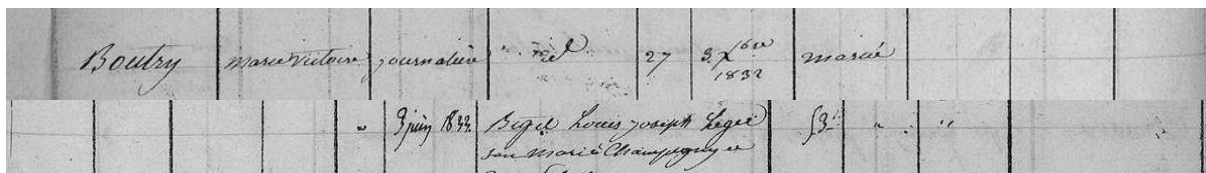 Boutry Marie Victoire journalière id 27 3. Xbre
1832 marié
" 3 juin 1833 Bigé Louis Joseph Legé 53 " "
son mari à Champigny